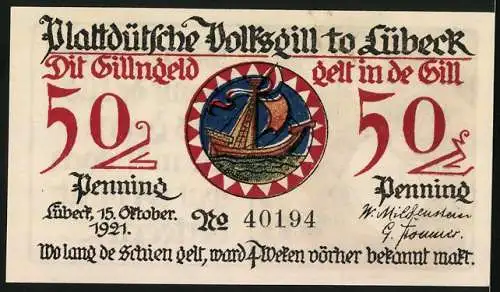 Plattdütsche Volksgill to Lübeck
Dit Gillngeld gelt in de Gill
50 50
Penning Penning
Lübeck, 15. Oktober. 1921.
No 40194
W. Milchenstein
G. Frommer.
Wo lang de Schien gelt, ward 4 Weken vörher bekannt makt.